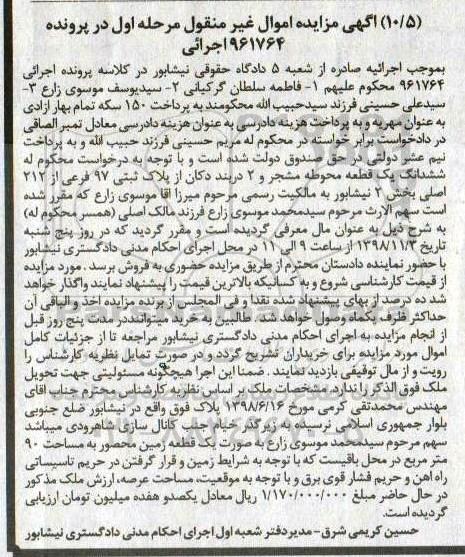 (۱۰/۵) آگهی مزایده اموال غیر منقول مرحله اول در پرونده
۹۶۱۷۶۴ اجرائی
بموجب اجرائیه صادره از شعبه ۵ دادگاه حقوقی نیشابور در کلاسه پرونده اجرائی
۹۶۱۷۶۴ محکوم علیهم ۱- فاطمه سلطان گرکیانی ۲- سیدیوسف موسوی زارع ۳-
سیدعلی حسینی فرزند سیدحبیب الله محکومند به پرداخت ۱۵۰ سکه تمام بهار آزادی
به عنوان مهریه و به پرداخت هزینه دادرسی به عنوان هزینه دادرسی معادل تمبر الصاقی
در دادخواست برابر خواسته در محکوم له مریم حسینی فرزند حبیب الله و به پرداخت
نیم عشر دولتی در حق صندوق دولت شده است و با توجه به درخواست محکوم له
ششدانگ یک قطعه محوطه مشجر و ۲ دربند دکان از پلاک ثبتی ۹۷ فرعی از ۲۱۲
اصلی بخش ۲ نیشابور به مالکیت رسمی مرحوم میرزا آقا موسوی زارع که مقرر شده
است سهم الارث مرحوم سیدمحمد موسوی زارع فرزند مالک اصلی (همسر محکوم له)
به شرح ذیل به عنوان مال معرفی گردیده است و مقرر گردید که در روز پنج شنبه
تاریخ ۱۳۹۸/۱۱/۳ از ساعت ۹ الی ۱۱ در محل اجرای احکام مدنی دادگستری نیشابور
با حضور نماینده دادستان محترم از طریق مزایده حضوری به فروش برسد. مورد مزایده
از قیمت کارشناسی شروع و به کسانیکه بالاترین قیمت را پیشنهاد نمایند واگذار خواهد
شد ده درصد از بهای پیشنهاد شده نقدا و فی المجلس از برنده مزایده اخذ و الباقی آن
حداکثر ظرف یکماه وصول خواهد شد. طالبین به خرید میتوانند در مدت پنج روز قبل
از انجام مزایده به اجرای احکام مدنی دادگستری نیشابور مراجعه تا از جزئیات کامل
اموال مورد مزایده برای خریداران تشریح گردد و در صورت تمایل نظریه کارشناس را
رویت و از مال توقیفی بازدید نمایند. ضمنا این اجرا هیچگونه مسئولیتی جهت تحویل
ملک فوق الذکر را ندارد. مشخصات ملک بر اساس نظریه کارشناس محترم جناب آقای
مهندس محمدتقی کرمی مورخ ۱۳۹۸/۶/۱۶ پلاک فوق واقع در نیشابور ضلع جنوبی
بلوار جمهوری اسلامی نرسیده به زیرگذر خیام جنب کانال سازی شاهرودی میباشد
سهم مرحوم سیدمحمد موسوی زارع به صورت یک قطعه زمین محصور به مساحت ۹۰
متر مربع در محل باقیست که با توجه به شرایط زمین و قرار گرفتن در حریم تاسیساتی
راه آهن و حریم فشار قوی برق و با توجه به موقعیت، مساحت عرصه، ارزش ملک مذکور
در حال حاضر مبلغ ۱/۱۷۰/۰۰۰/۰۰۰ ریال معادل یکصدو هفده میلیون تومان ارزیابی
گردیده است.
حسین کریمی شرق- مدیر دفتر شعبه اول اجرای احکام مدنی دادگستری نیشابور